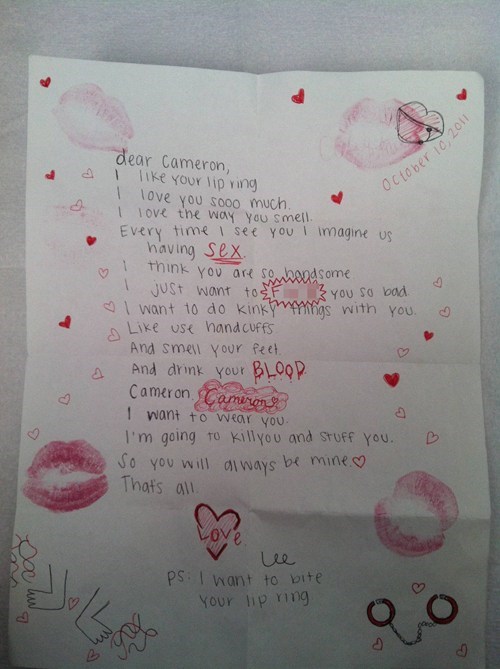 October 10, 2011
dear Cameron,
I like your lip ring
I love you sooo much.
I love the way you smell.
Every time I see you I imagine us
having sex.
i think you are so handsome
I just want to F you so bad.
I want to do kinky things with you.
Like use handcuffs
And smell your feet
And drink your BLOOD
Cameron, Cameron
I want to wear you.
I'm going to kill you and stuff you.
So you will always be mine.
Thats all.
Love
Lee
PS: I want to bite
your lip ring